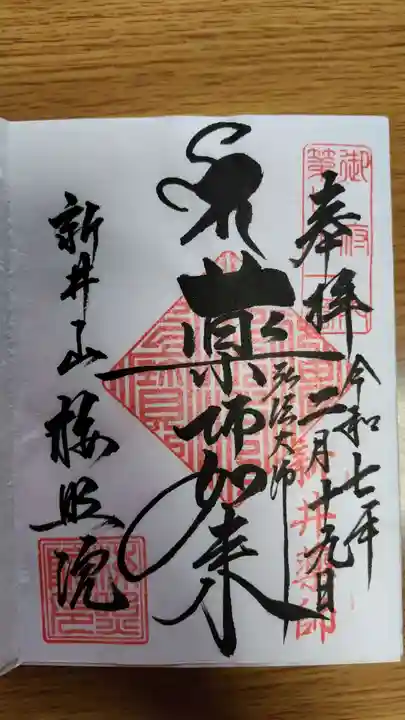 奉拝
令和七年
二月十九日
弘法大師
薬師如来
新井山梅照院
新井薬師